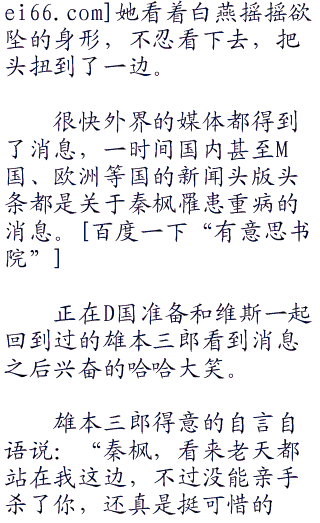 ei66.com]她看着白燕摇摇欲
坠的身形，不忍看下去，把
头扭到了一边。
很快外界的媒体都得到
了消息，一时间国内甚至M
国、欧洲等国的新闻头版头
条都是关于秦枫罹患重病的
消息。[百度一下“有意思书
院”]
正在D国准备和维斯一起
回到过的雄本三郎看到消息
之后兴奋的哈哈大笑。
雄本三郎得意的自言自
语说：“秦枫，看来老天都
站在我这边，不过没能亲手
杀了你，还真是挺可惜的